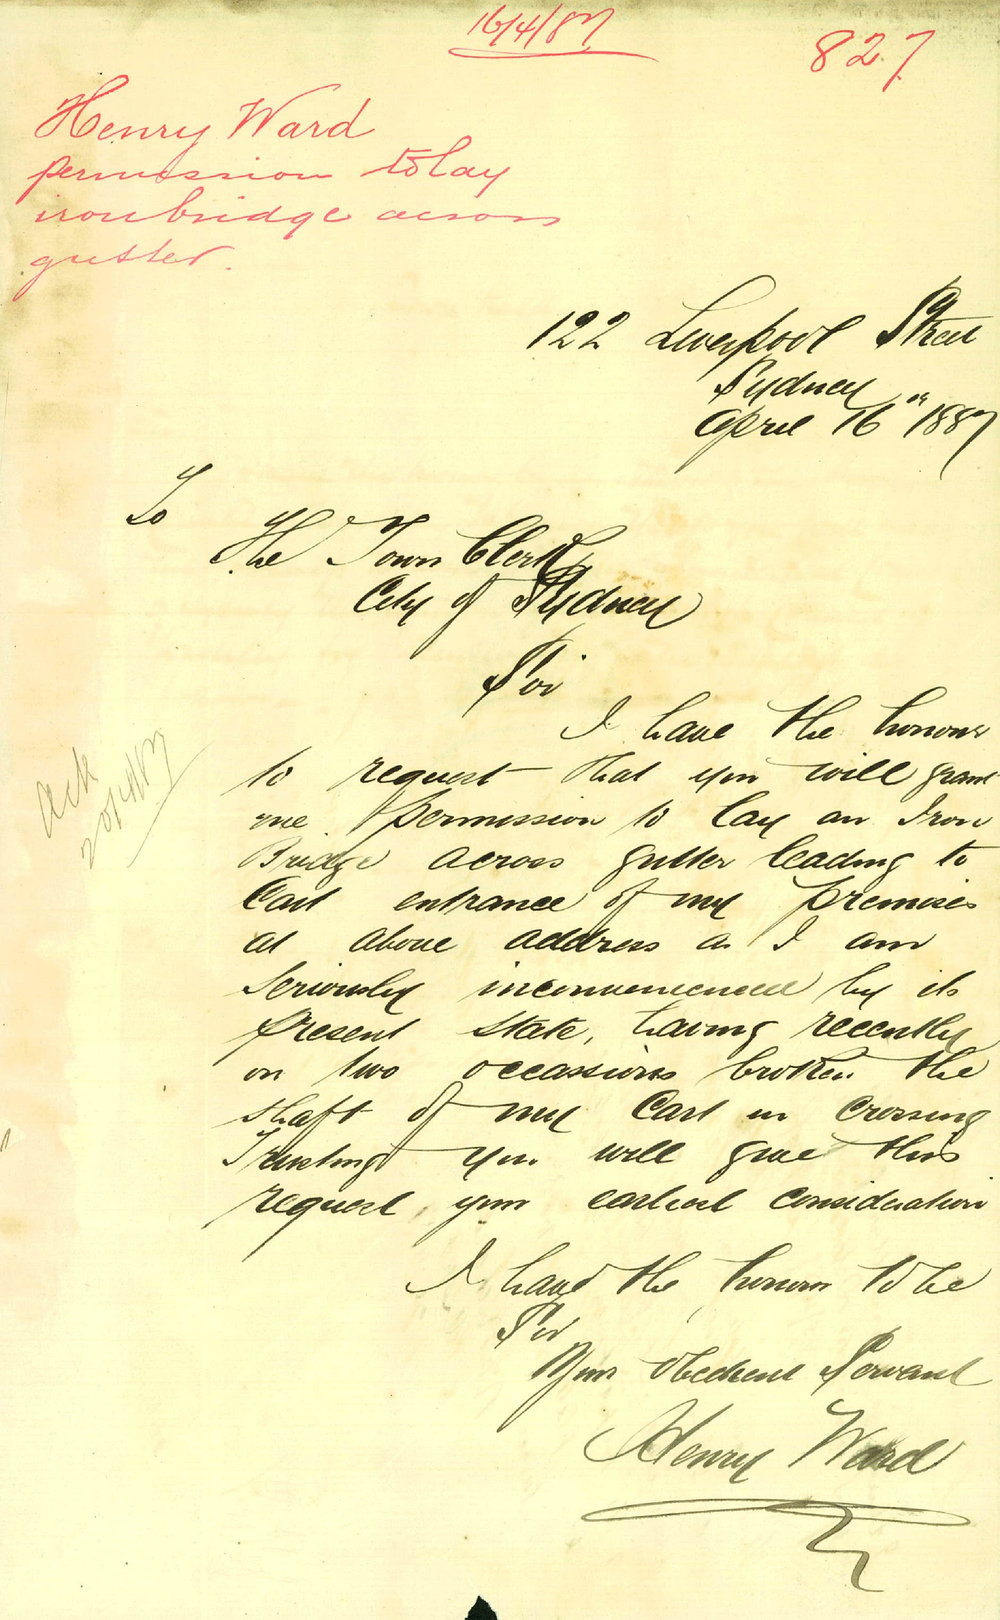 16/4/87
827
Henry Ward
permission to lay
iron bridge across
gutter.
122 Liverpool Street
Sydney
April 16th 1887
To
The Town Clerk
City of Sydney
Sir
I have the honour
to request that you will grant
me permission to lay an Iron
Bridge across gutter leading to
Cart entrance of my premises
at above address as I am
seriously inconvenienced by its
present state, having recently
on two occassions broken the
shaft of my Cart in crossing
Trusting you will give this
request your earliest consideration
I have the honour to be
Sir
Your obedient Servant
Henry Ward
Ack
20/4/87